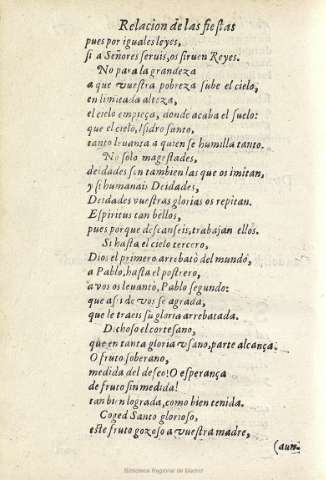 Relacion de las fiestas
pues por iguales leyes,
si a Señores seruis, os siruen Reyes.
No para la grandeza
a que vuestra pobreza sube el cielo,
en limitada alteza,
el cielo empieça, donde acaba el suelo:
que el cielo, Isidro santo,
tanto leuanta a quien se humilla tanto.
No solo magestades,
deidades son tambien las que os imitan,
y si humanais Deidades,
Deidades vuestras glorias os repitan.
Espiritus tan bellos,
pues porque descanseis, trabajan ellos.
Si hasta el cielo tercero,
Dios el primero arrebatò del mundo,
a Pablo, hasta el postrero,
a vos os leuantò, Pablo segundo:
que assi de vos se agrada,
que le traeis su gloria arrebatada.
Dichoso el cortesano,
que en tanta gloria vsano, parte alcança.
O fruto soberano,
medida del deseo! O esperança
de fruto sin medida!
tan bien lograda, como bien tenida.
Coged Santo glorioso,
este fruto gozoso a vuestra madre,
(aun-
Biblioteca Regional de Madrid